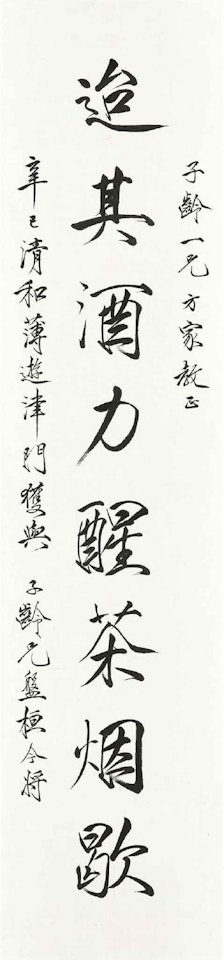 子齡一兄方家教正
迨其酒力醒茶烟歇
辛巳清和薄遊津門獲與 子齡兄盤桓今将